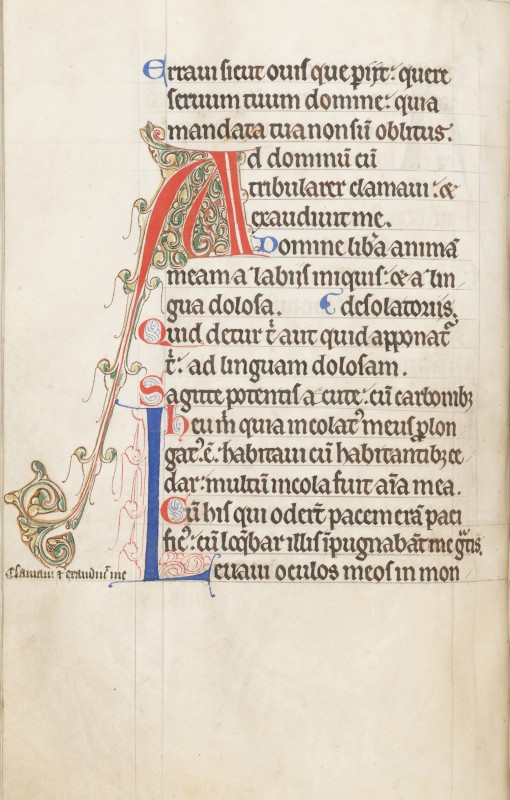 Erraui sicut ouis que perijt: quere
seruum tuum domine: quia
mandata tua non sū oblitus.
Ad dominū cū
tribularer clamaui: &
exaudiuit me.
Domine lib̄a animā
meam a labijs iniquis: & a lin
gua dolosa. desolatorijs.
Quid detur t̄ aut quid apponat᷑
t̄: ad linguam dolosam.
Sagitte potentis acute: cū carbonibꝫ
Heu m̄ quia incolatꝰ meus ꝓlon
gatꝰ ē: habitaui cū habitantibꝫ ce
dar: multū incola fuit aīa mea.
Cū his qui odert̄ pacem erā paci
ficꝰ: cū loq̄bar illis īpugnabāt me gͣtis.
Leuaui oculos meos in mon
Clamaui & exaudiuit me